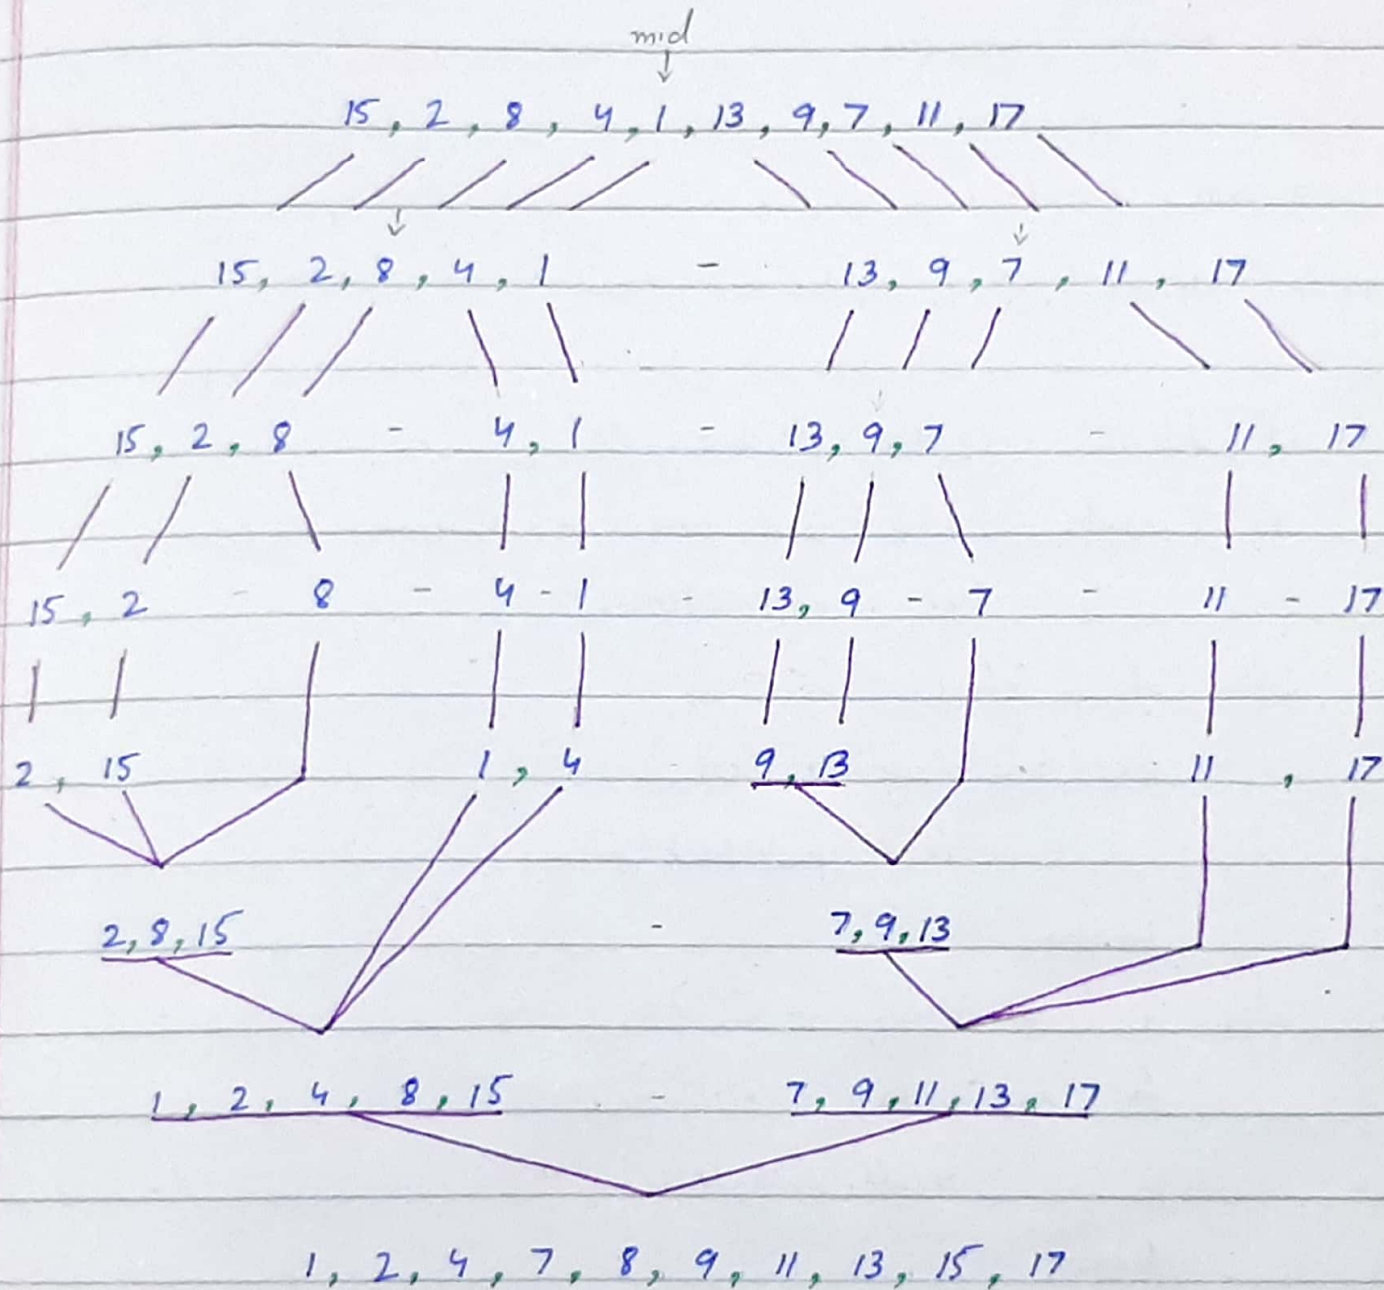 mid
15, 2, 8, 4, 1, 13, 9, 7, 11, 17
15, 2, 8, 4, 1 - 13, 9, 7, 11, 17
15, 2, 8 - 4, 1 - 13, 9, 7 - 11, 17
15, 2 - 8 - 4 - 1 - 13, 9 - 7 - 11 - 17
2, 15 1, 4 9, 13 11, 17
2, 8, 15 - 7, 9, 13
1, 2, 4, 8, 15 - 7, 9, 11, 13, 17
1, 2, 4, 7, 8, 9, 11, 13, 15, 17